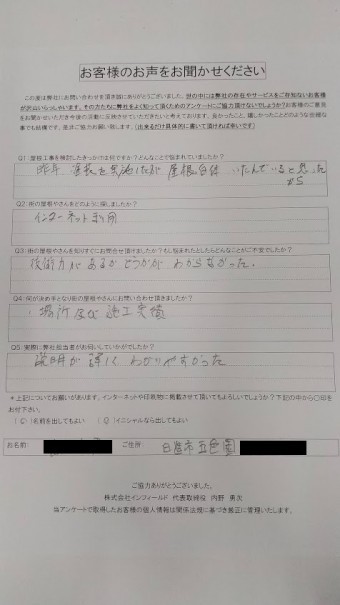 お客様のお声をお聞かせください
この度は弊社にお問い合わせを頂き誠にありがとうございました。世の中には弊社の存在やサービスをご存知ないお客様
が沢山いらっしゃいます。その方たちに弊社をよく知って頂くためのアンケートにご協力頂けないでしょうか?お客様のご意見
をお聞かせいただき今後の活動に反映させていただきたいと考えております。良かったこと、嬉しかったことどのような些細な
事でも結構です。是非ご協力お願い致します。(出来るだけ具体的に書いて頂ければ幸いです)
Q1:屋根工事を検討したきっかけは何ですか?どんなことで悩まれていましたか?
昨年、塗装を実施したが屋根自体いたんでいると思った
から
Q2:街の屋根やさんをどのように探しましたか?
インターネット利用
Q3:街の屋根やさんを知りすぐにお問合せ頂けましたか?もし悩まれたとしたらどんなことがご不安でしたか?
技術力があるかどうかがわからなかった。
Q4:何が決め手となり街の屋根やさんにお問い合わせ頂きましたか?
場所及び施工実績
Q5:実際に弊社担当者がお伺いしていかがでしたか?
説明が詳しくわかりやすかった
*上記についてお願いがあります。インターネットや印刷物に掲載させて頂いてもよろしいでしょうか?下記の中から○印を
お付下さい。
( )名前を出してもよい ( )イニシャルなら出してもよい
お名前: ご住所: 日進市五色園
ご協力ありがとうございました。
株式会社インフィールド 代表取締役 内野 勇次
当アンケートで取得したお客様の個人情報は関係法規に基づき厳正に管理いたします。